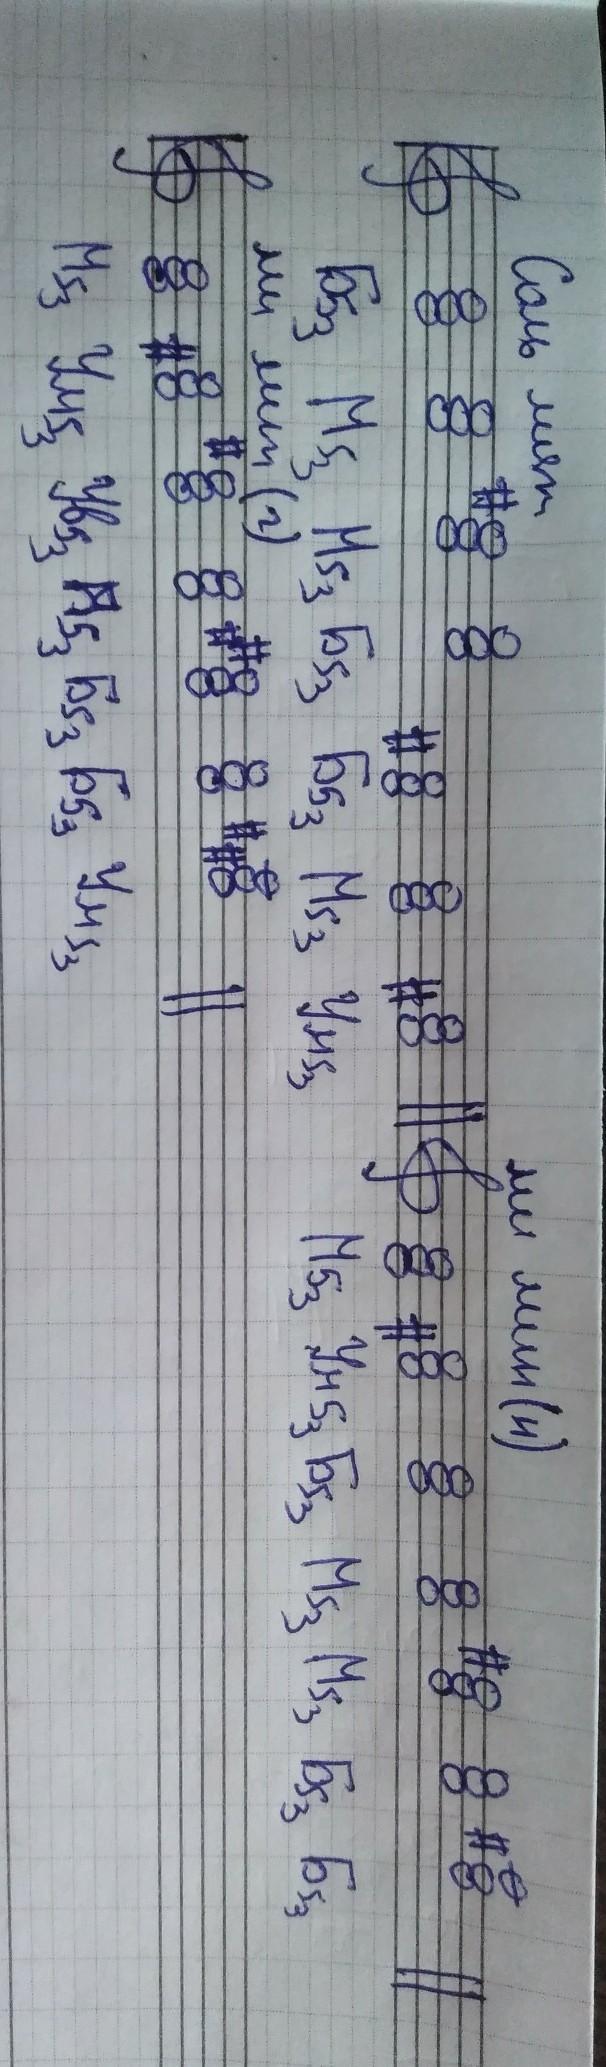 Соль маж
ми мин (н)
Б53 М53 М53 Б53 Б53 М53 Ум53 М53 Ум53 Б53 М53 М53 Б53 Б53
ми мин (г)
М53 Ум53 Ув53 М53 Б53 Б53 Ум53